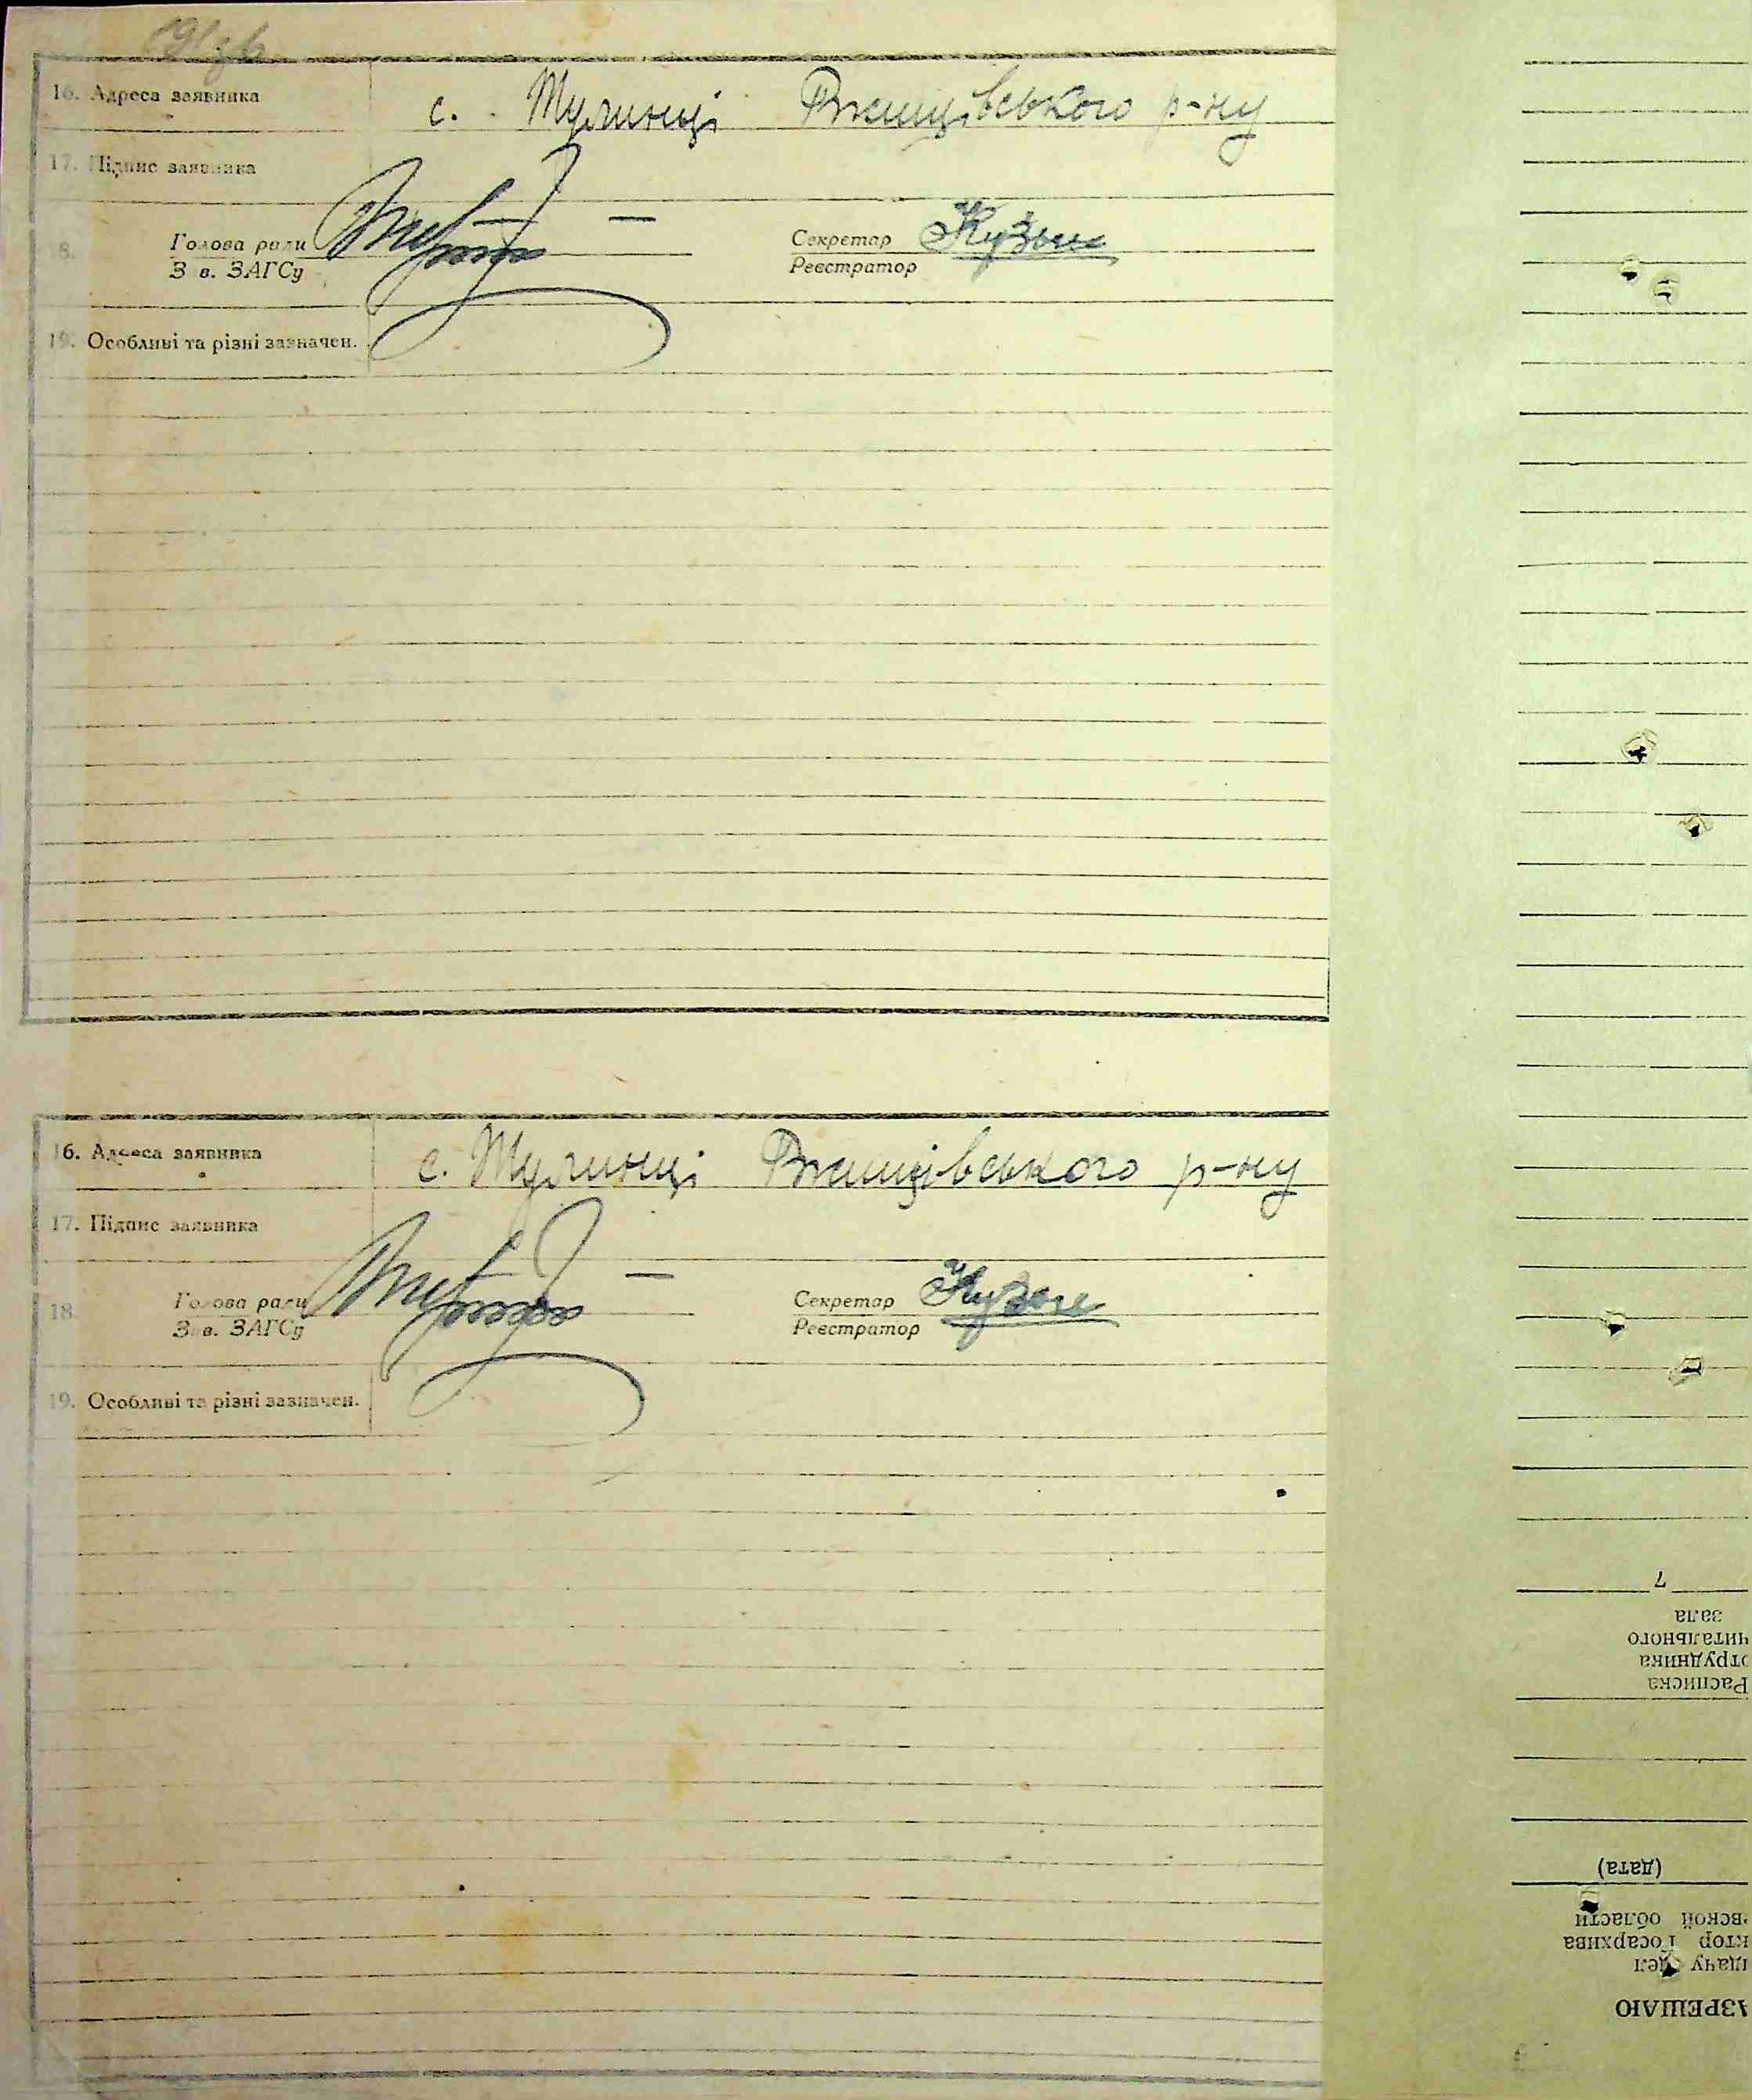 16. Адреса заявника с. Тулинці Ржищівського р-ну
17. Підпис заявника
8. Голова ради Секретар
З в. ЗАГСу Реєстратор
19. Особливі та різні зазначен.
16. Адреса заявника с. Тулинці Ржищівського р-ну
17. Підпис заявника
18. Голова ради Секретар
З в. ЗАГСу Реєстратор
19. Особливі та різні зазначен.
АЗРЕШАЮ
дачу дел
ктор Госархива
вской области
(дата)
Расписка
отрудника
читального
зала
7